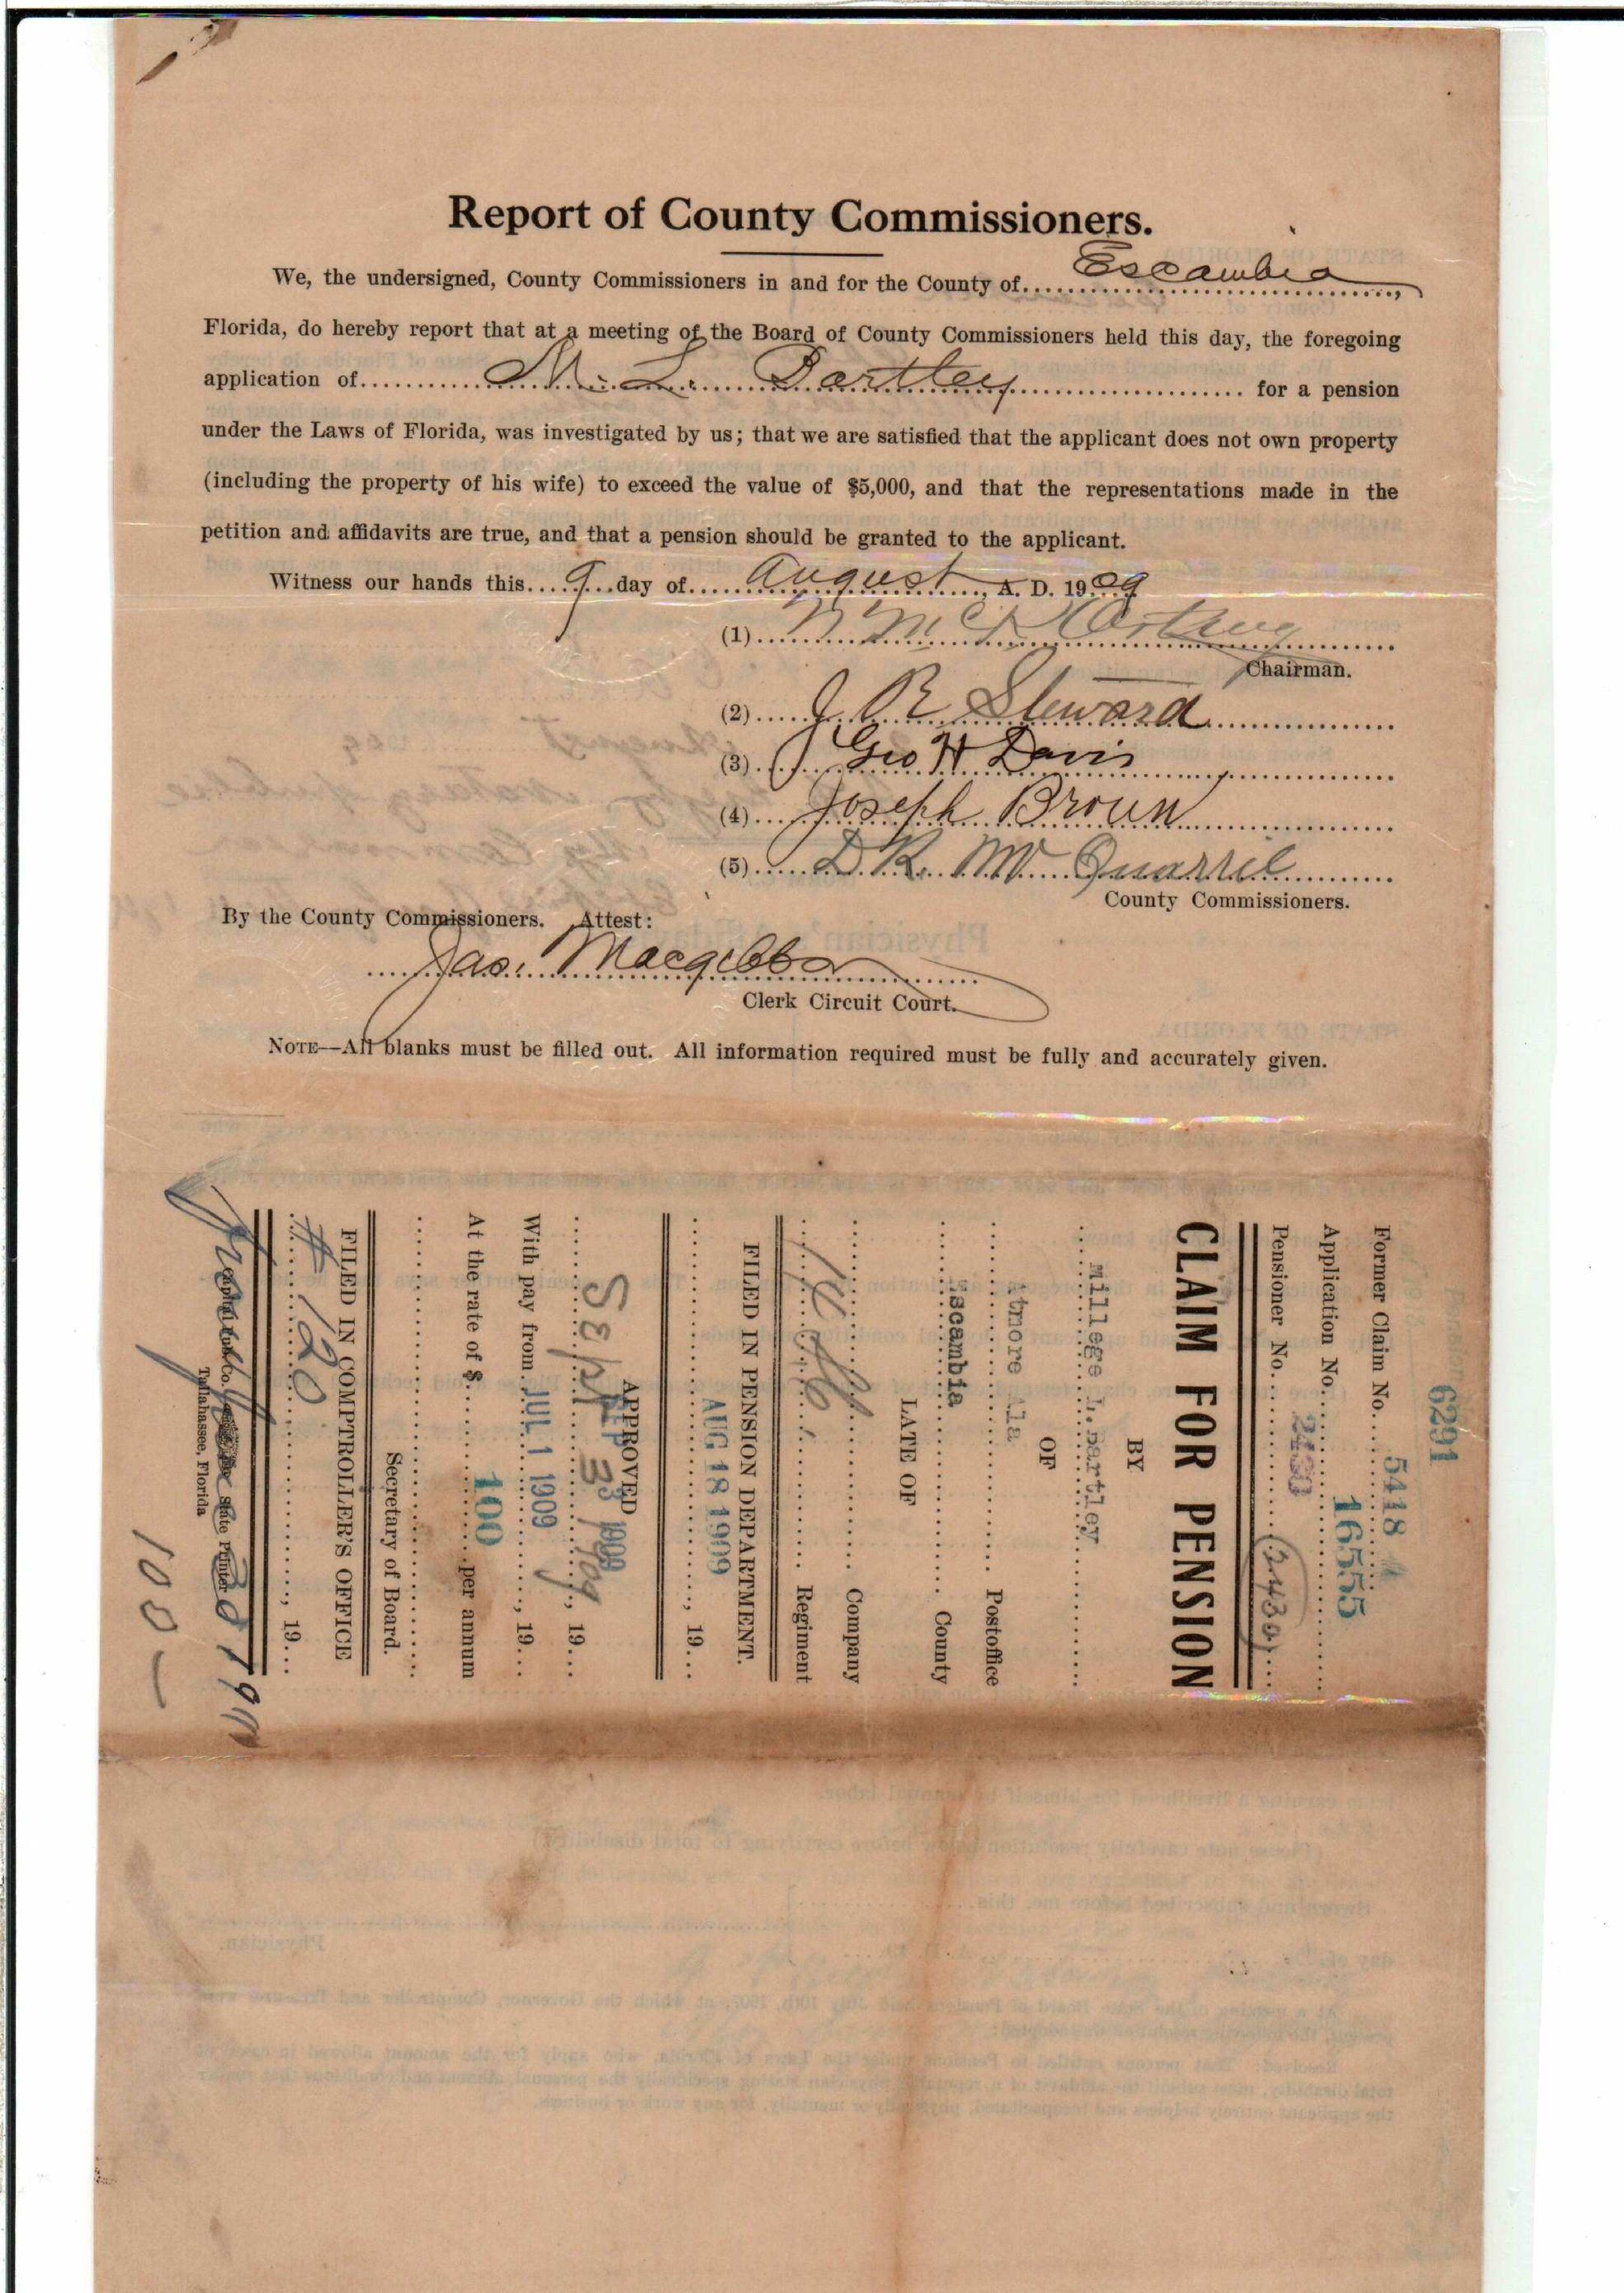 Report of County Commissioners.
We, the undersigned, County Commissioners in and for the County of Escambia,
Florida, do hereby report that at a meeting of the Board of County Commissioners held this day, the foregoing
application of M. L. Bartley for a pension
under the Laws of Florida, was investigated by us; that we are satisfied that the applicant does not own property
(including the property of his wife) to exceed the value of $5,000, and that the representations made in the
petition and affidavits are true, and that a pension should be granted to the applicant.
Witness our hands this 9 day of August, A. D. 1909
(1)
Chairman.
(2) J R Steward
(3) Geo H Davis
(4) Joseph Broun
(5) D K Mc Quarrie
County Commissioners.
By the County Commissioners. Attest:
Jas. Macgibbon
Clerk Circuit Court.
NOTE—All blanks must be filled out. All information required must be fully and accurately given.
6291
Former Claim No. 5418
Application No. 16555
Pensioner No. 2430 (2430)
CLAIM FOR PENSION
BY
Millege L. Bartley
OF
Atmore Ala Postoffice
Escambia County
LATE OF
Company
Regiment
FILED IN PENSION DEPARTMENT.
AUG 18 1909, 19
APPROVED
Sept 3/09, 19
With pay from JUL 1 1909, 19
At the rate of $ 100 per annum
Secretary of Board.
FILED IN COMPTROLLER'S OFFICE
# 120
, 19
State Printer
Tallahassee, Florida
100 —